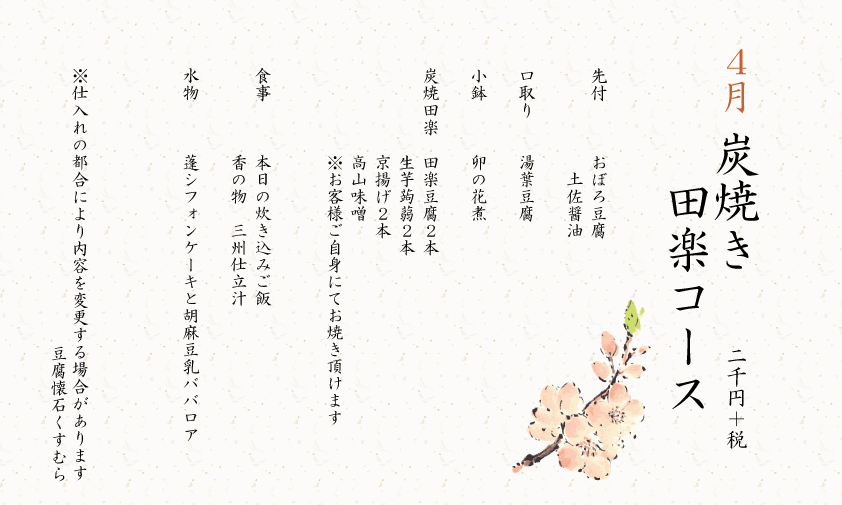 4月 炭焼き
田楽コース
二千円＋税
先付 おぼろ豆腐
土佐醤油
口取り 湯葉豆腐
小鉢 卯の花煮
炭焼田楽 田楽豆腐2本
生芋蒟蒻2本
京揚げ2本
高山味噌
※お客様ご自身にてお焼き頂けます
食事 本日の炊き込みご飯
香の物 三州仕立汁
水物 蓬シフォンケーキと胡麻豆乳ババロア
※仕入れの都合により内容を変更する場合があります
豆腐懐石くすむら